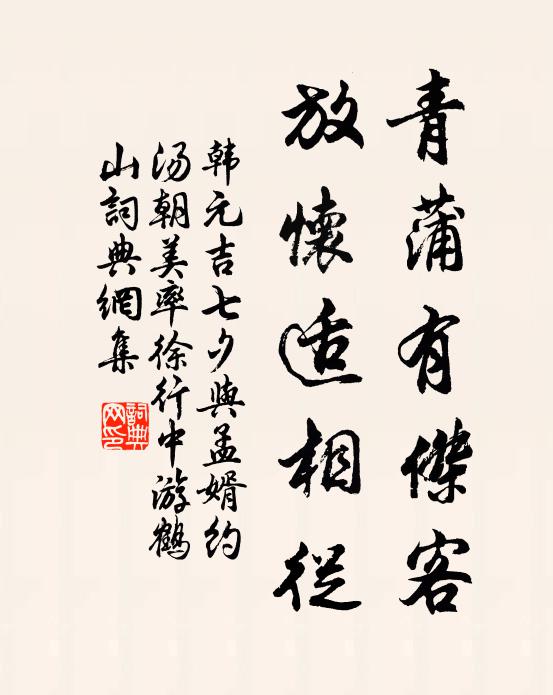 青蒲有傑客
放懷适相從
韩元吉七夕與孟婿约
汤朝美率徐行中游鹤
山詞典網集
詞典
网印